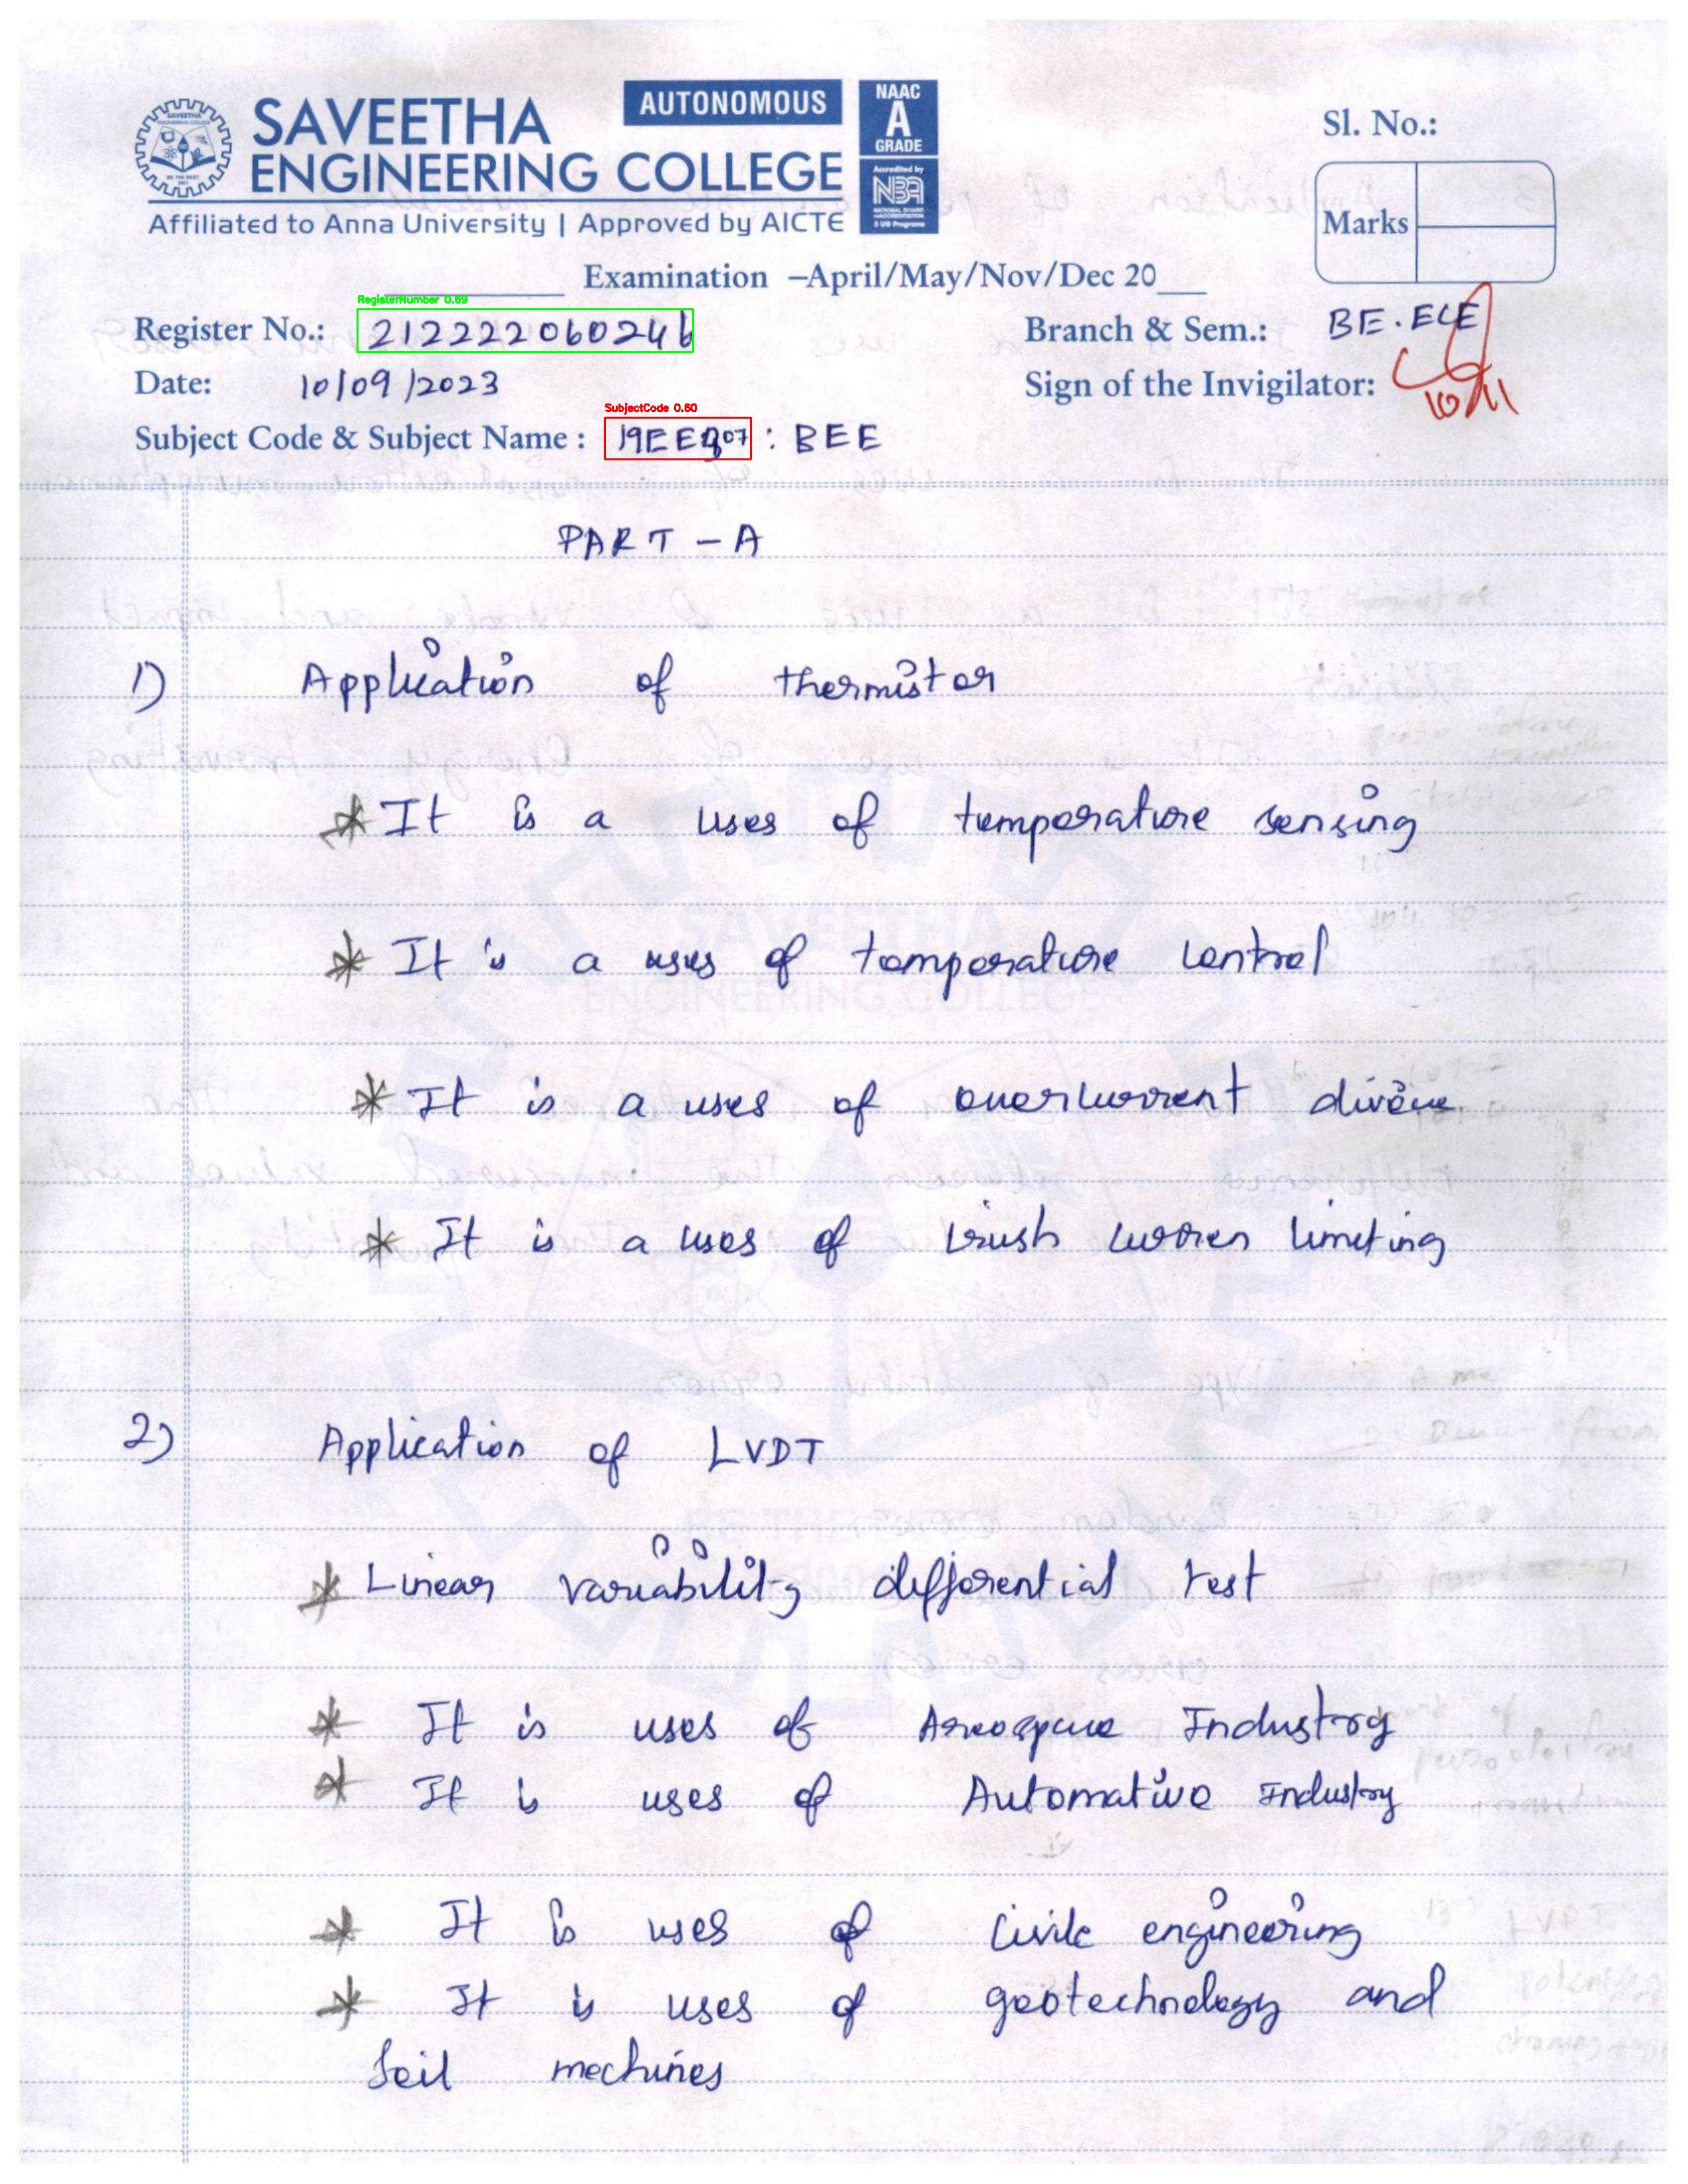 SAVEETHA
ENGINEERING COLLEGE
AUTONOMOUS
NAAC
A
GRADE
Accredited by
NBA
NATIONAL BOARD
of ACCREDITATION
Affiliated to Anna University | Approved by AICTE
Sl. No.:
Marks
Examination –April/May/Nov/Dec 20__
RegisterNumber 0.69
Register No.: 212222060246
Branch & Sem.: BE.ECE
Date: 10/09/2023
Sign of the Invigilator:
SubjectCode 0.60
Subject Code & Subject Name : 19EE307 : BEE
PART - A
1) Application of thermistor
* It is a uses of temperature sensing
* It is a uses of temperature control
* It is a uses of overcurrent
* It is a uses of limiting
2) Application of LVDT
* Linear variability differential test
* It is uses of Aerospace Industry
* It is uses of Automative Industry
* It is uses of civile engineering
* It is uses of geotechnology and
Soil mechines